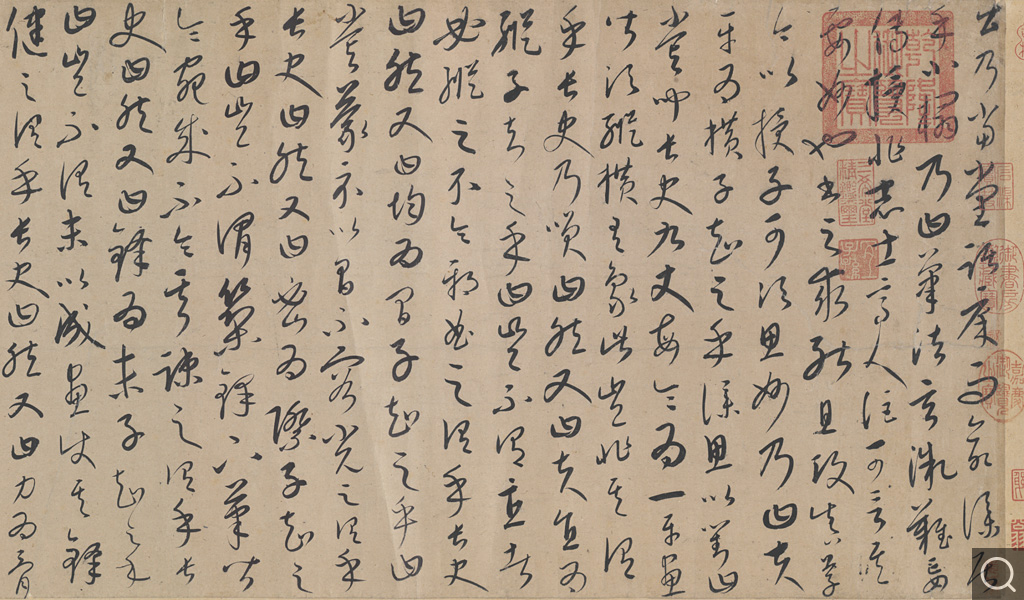 史乃當堂踞床而命僕居
乎小榻乃曰筆法玄微難妄
傳授非志士高人詎可言其
要妙也書之求能且攻真草
今以授子可須思妙乃曰夫
平為橫子知之乎僕思以對曰
嘗聞長史九丈每令為一平畫
皆須縱橫有象此豈非其謂
乎長史乃笑曰然又曰夫直為
縱子知之乎曰豈不謂直者
必縱之不令邪曲之謂乎長史
曰然又曰均為間子知之乎曰
嘗蒙示以間不容光之謂乎
長史曰然又曰密為際子知之
乎曰豈不謂築鋒下筆皆
令宛成不令其疎之謂乎長
史曰然又曰鋒為末子知之乎
曰豈不謂末以成畫使其鋒
健之謂乎長史曰然又曰力為骨